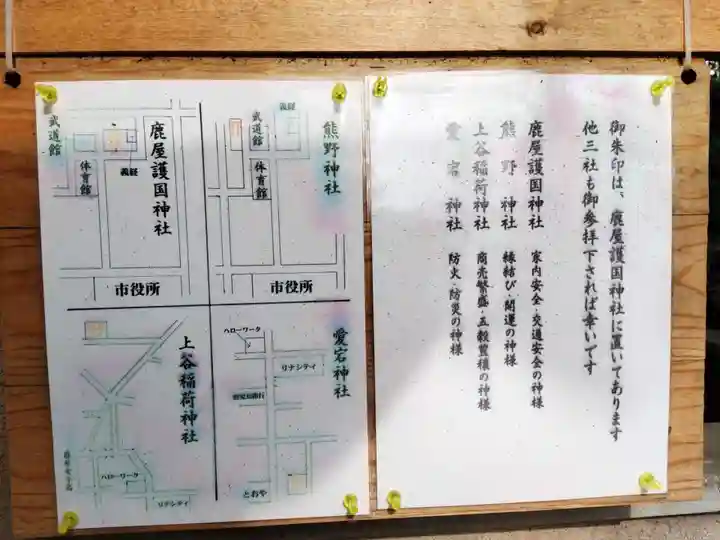 御朱印は、鹿屋護国神社に置いてあります
他三社も御参拝下されば幸いです
鹿屋護国神社 家内安全・交通安全の神様
熊野神社 縁結び・開運の神様
上谷稲荷神社 商売繁盛・五穀豊穣の神様
愛宕神社 防火・防災の神様
熊野神社
義経
武道館
体育館
市役所
鹿屋護国神社
義経
武道館
体育館
市役所
愛宕神社
ハローワーク
リナシティ
とおや
上谷稲荷神社
ハローワーク
リナシティ